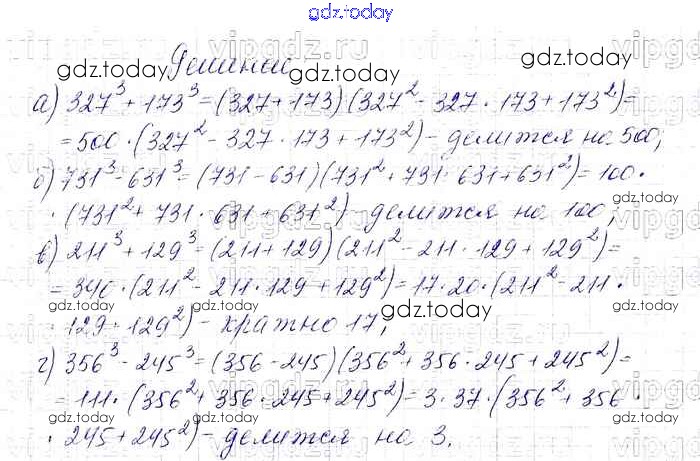 gdz.today
Решение
а) 327³ + 173³ = (327 + 173)(327² - 327 · 173 + 173²) =
= 500 · (327² - 327 · 173 + 173²) - делится на 500;
б) 731³ - 631³ = (731 - 631)(731² + 731 · 631 + 631²) = 100 ·
· (731² + 731 · 631 + 631²) - делится на 100;
в) 211³ + 129³ = (211 + 129)(211² - 211 · 129 + 129²) =
= 340 · (211² - 211 · 129 + 129²) = 17 · 20 · (211² - 211 ·
· 129 + 129²) - кратно 17;
г) 356³ - 245³ = (356 - 245)(356² + 356 · 245 + 245²) =
= 111 · (356² + 356 · 245 + 245²) = 3 · 37 · (356² + 356 ·
· 245 + 245²) - делится на 3.